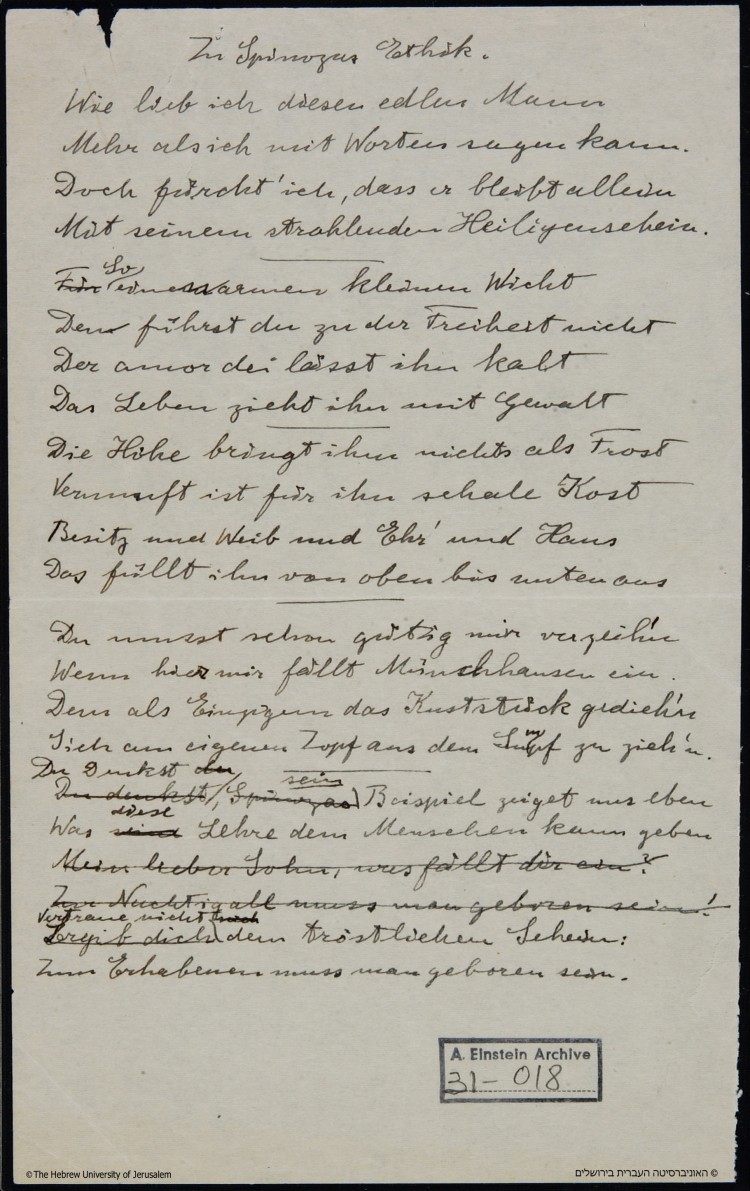 Zu Spinozas Ethik.
Wie lieb ich diesen edlen Mann
Mehr als ich mit Worten sagen kann.
Doch fürcht' ich, dass er bleibt allein
Mit seinem strahlenden Heiligenschein.
So
Für einen armen kleinen Wicht
Den führst du zu der Freiheit nicht
Der amor dei lässt ihn kalt
Das Leben zieht ihn mit Gewalt
Die Höhe bringt ihm nichts als Frost
Vernunft ist für ihn schale Kost
Besitz und Weib und Ehr' und Haus
Das füllt ihn von oben bis unten aus
Du musst schon gütig mir verzeih'n
Wenn hier mir fällt Münchhausen ein.
Dem als Einzigem das Kuststück gedieh'n
Sich am eigenen Zopf aus dem Sumpf zu zieh'n.
Du Denkst du sein
Du denkst, Spinozas Beispiel zeiget uns eben
diese
Was sind Lehre dem Menschen kann geben
Mein lieber Sohn, was fällt dir ein?
Zur Nachtigall muss man geboren sein!
Vertraue nicht
Ergib dich dem tröstlichen Schein:
Zum Erhabenen muss man geboren sein.
A. Einstein Archive
31-018
© The Hebrew University of Jerusalem
© האוניברסיטה העברית בירושלים